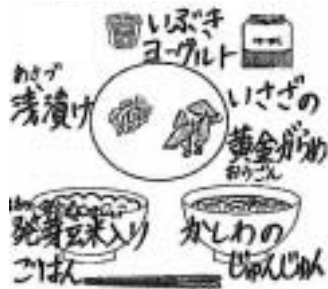 いぶき
ヨーグルト
あさづ
浅漬け
いさざの
黄金がらめ
おうごん
発芽玄米入り
ごはん
かしわの
じゅんじゅん